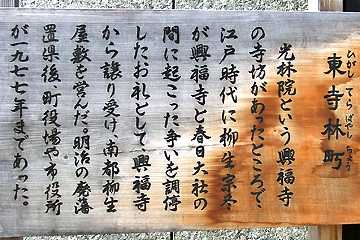 東寺林町
ひがしてらばやしちょう
光林院という興福寺
の寺坊があったところで、
江戸時代に柳生宗冬
が興福寺と春日大社の
間に起こった争いを調停
した、お礼として興福寺
から譲り受け、南都柳生
屋敷を営んだ。明治の廃藩
置県後、町役場や市役所
が一九七七年まであった。